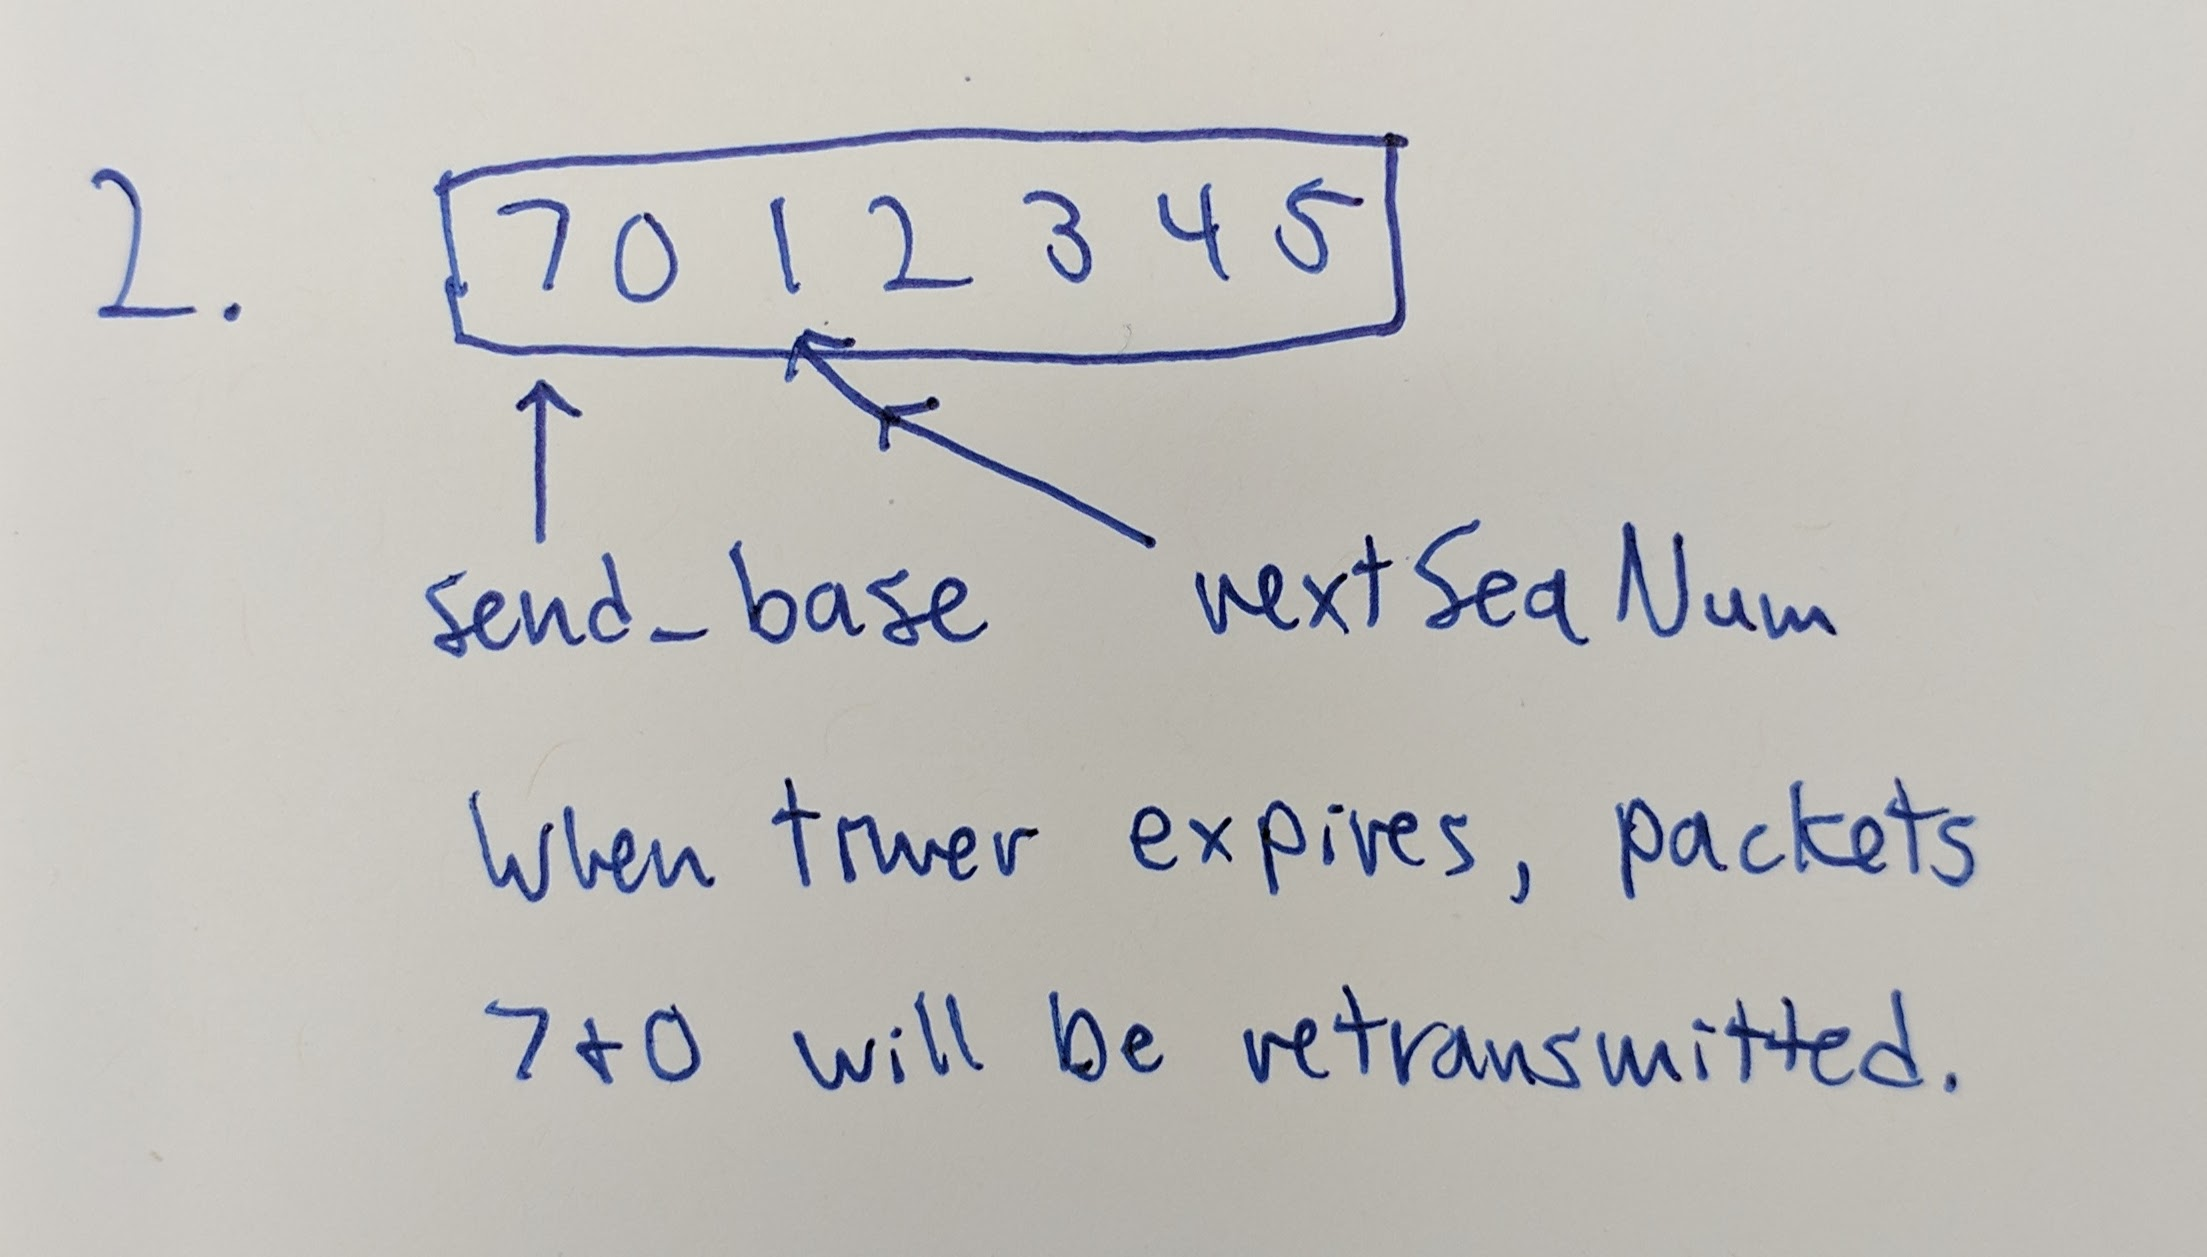 2.
7 0 1 2 3 4 5
send_base nextSeqNum
When timer expires, packets
7+0 will be retransmitted.